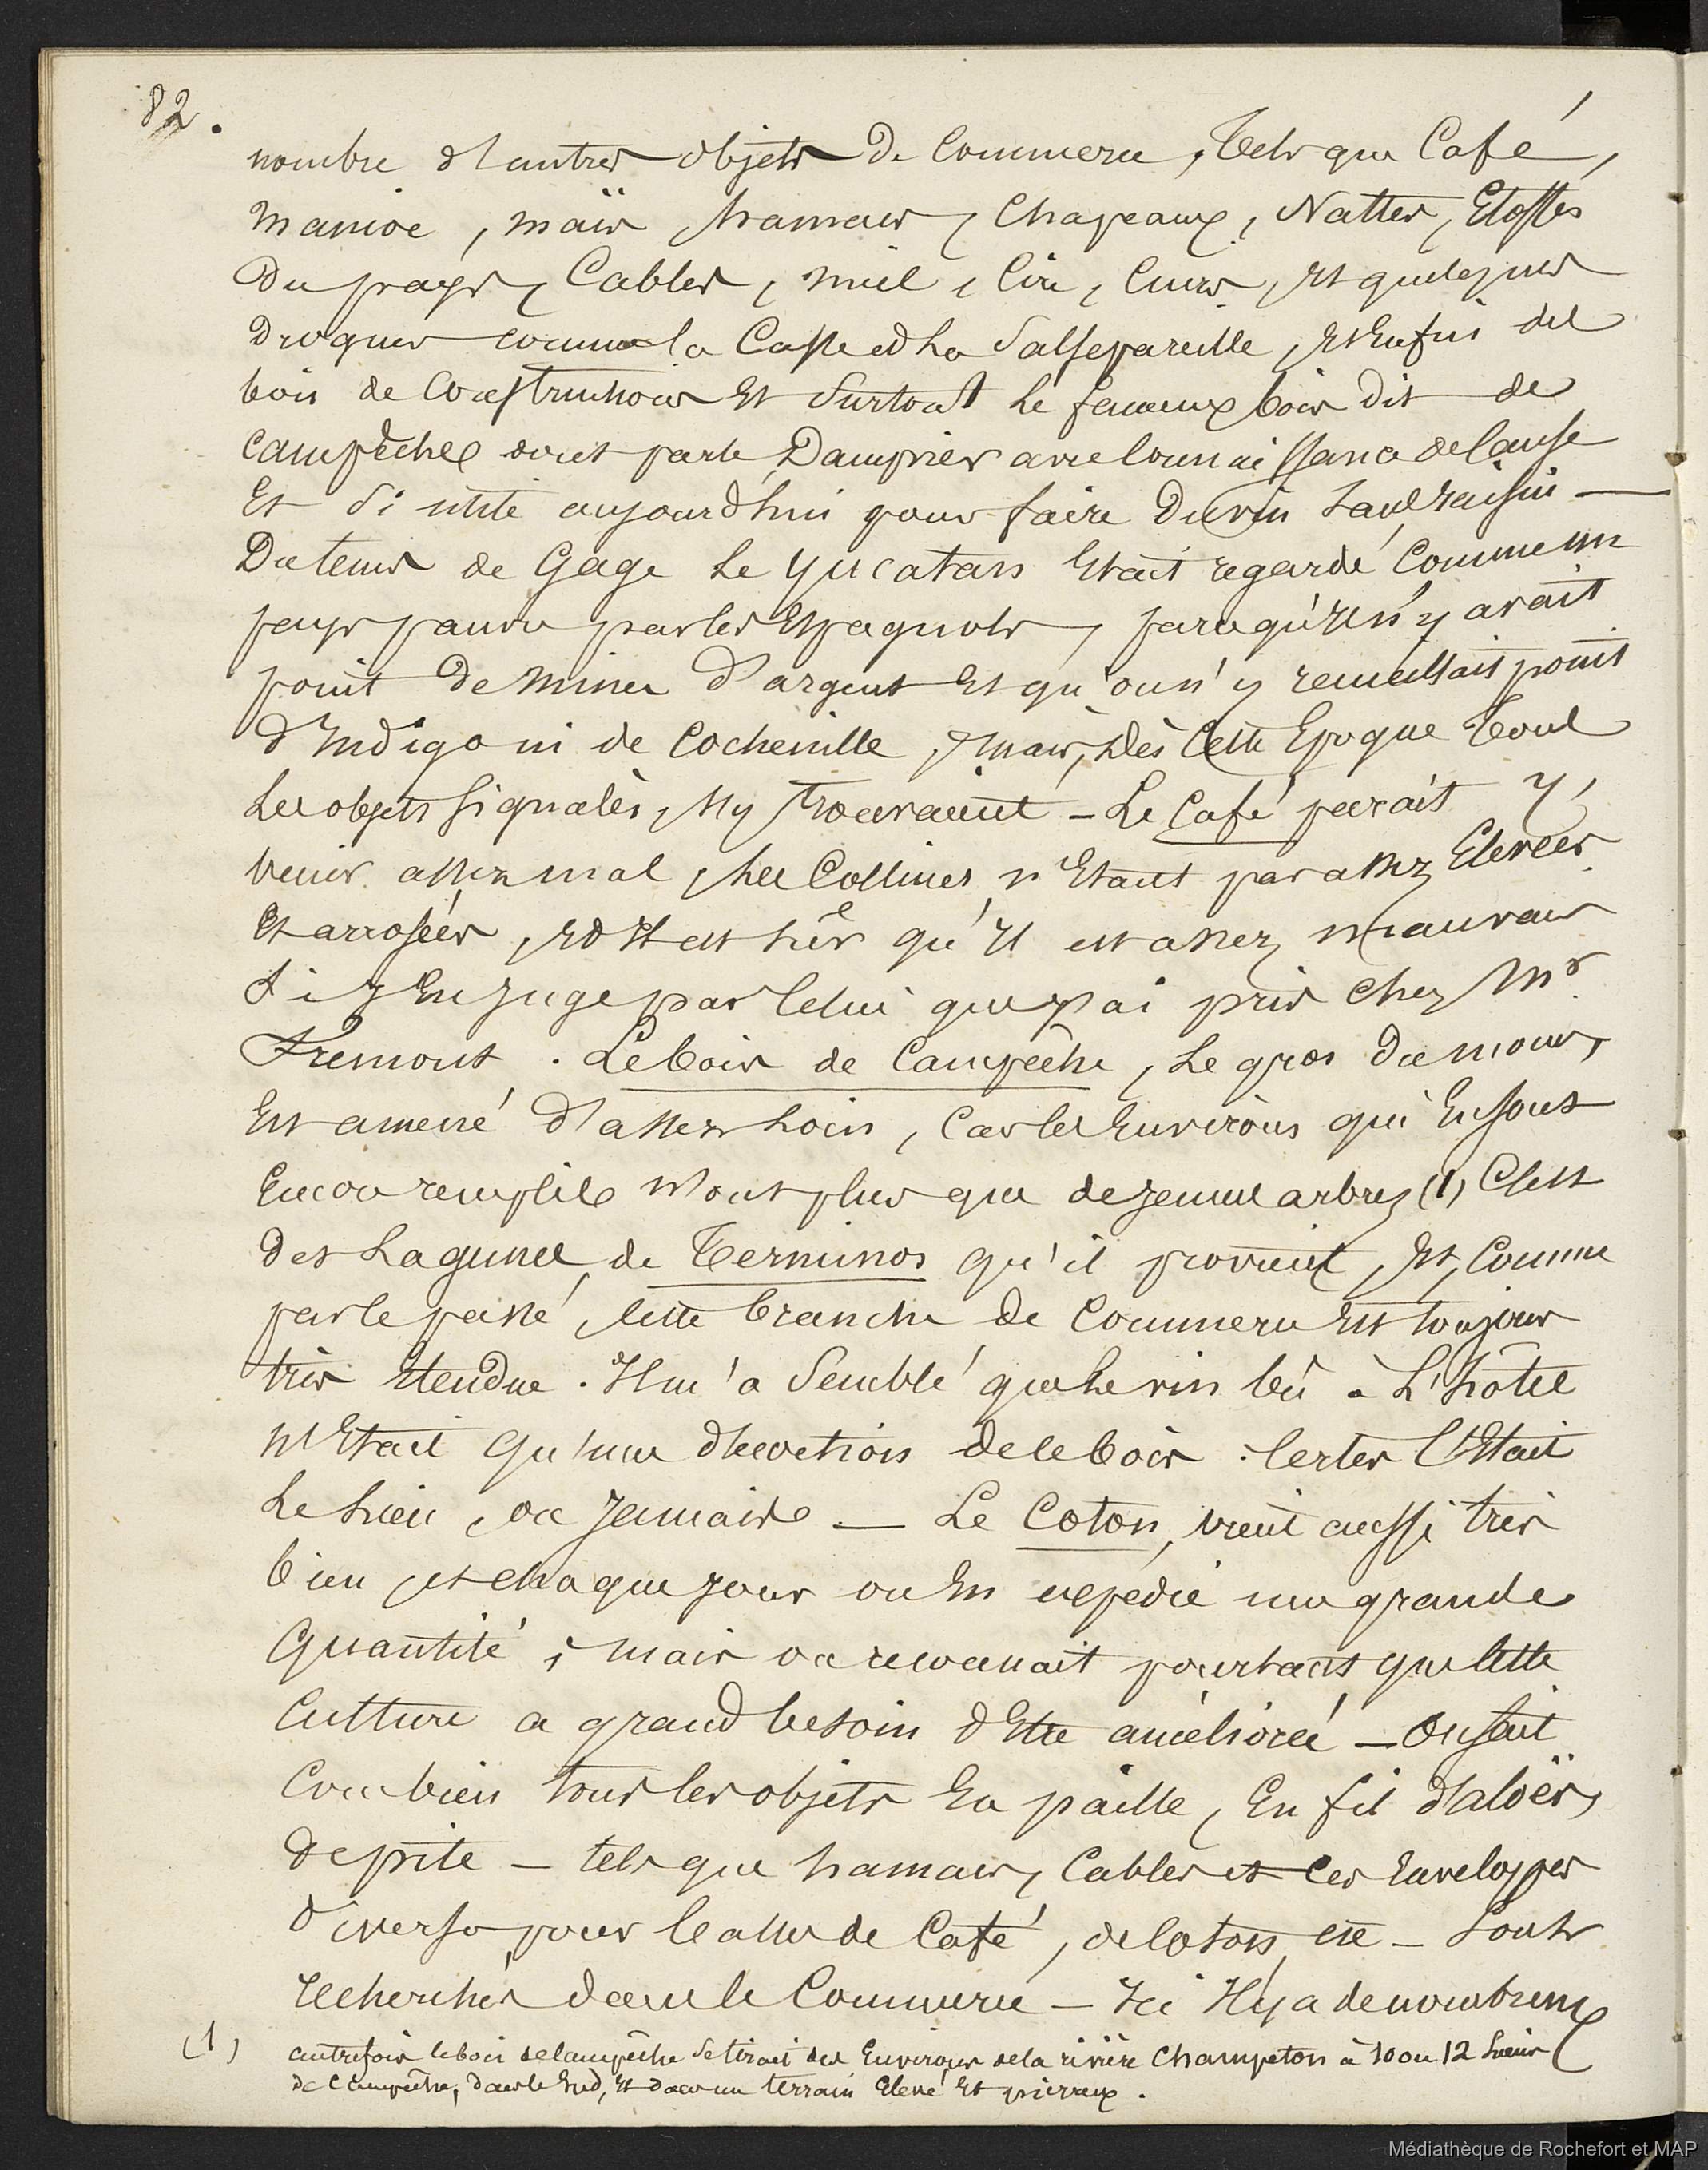 82.
nombre d'autres objets de Commerce, Tels que Café,
Manioc, maïs, hamacs, Chapeaux, Nattes, Etoffes
Du pays, Cables, miel, Cire, Cuirs, et quelques
Drogues comme la Casse et la Salsepareille, et Enfin des
bois de Construction Et Surtout le fameux bois dit de
Campêche dont parle Dampier avec connaissance de cause
Et si utile aujourd'hui pour faire Du vin sans raisin —
Du tems de Gage le Yucatan Etait regardé Comme un
pays pauvre par les Espagnols, parcequ'il n'y avait
point De Mines D'argent Et qu'on n'y recueillait point
d'Indigo ni de Cochenille, Mais, Dès Cette Epoque Tous
Les objets signalés, s'y trouvaient – Le Café parait y
venir assez mal, les Collines n'Etant pas assez Elevées
Et arrosées, et Il est sûr qu'Il est assez mauvais
si J'En Juge par Celui que J'ai pris chez Mr
Fremont. Le bois de Campêche, le gros du moins,
Est amené d'assez loin, Car les Environs qui En sont
Encore remplis N'ont plus que de jeunes arbres (1) C'est
Des Lagunes de Terminos qu'il provient, Et, Comme
par le passé, Cette branche de Commerce Est toujours
très Etendue. Il m'a Semblé que le vin bû à L'hôtel
N'Etait qu'une decoction de ce bois : Certes C'Etait
Le lieu, ou Jamais — Le Coton, vient aussi très
bien, et chaque Jour on En expédie une grande
Quantité ; Mais on reconnait pourtant que Cette
Culture a grand besoin d'Etre améliorée — On sait
Combien tous les objets En paille, En fil d'aloës,
De pite — tels que hamacs, Cables et Ces Enveloppes
Diverses pour balles de Café, de Coton, etc — Sont
recherchés dans le Commerce — Ici Il y a de nombreux
(1) autrefois le bois de Campêche se tirait des Environs de la rivière Champeton à 10 ou 12 Lieues
de Campêche, dans le Sud, Et dans un terrain Elevé Et pierreux.
Médiathèque de Rochefort et MAP